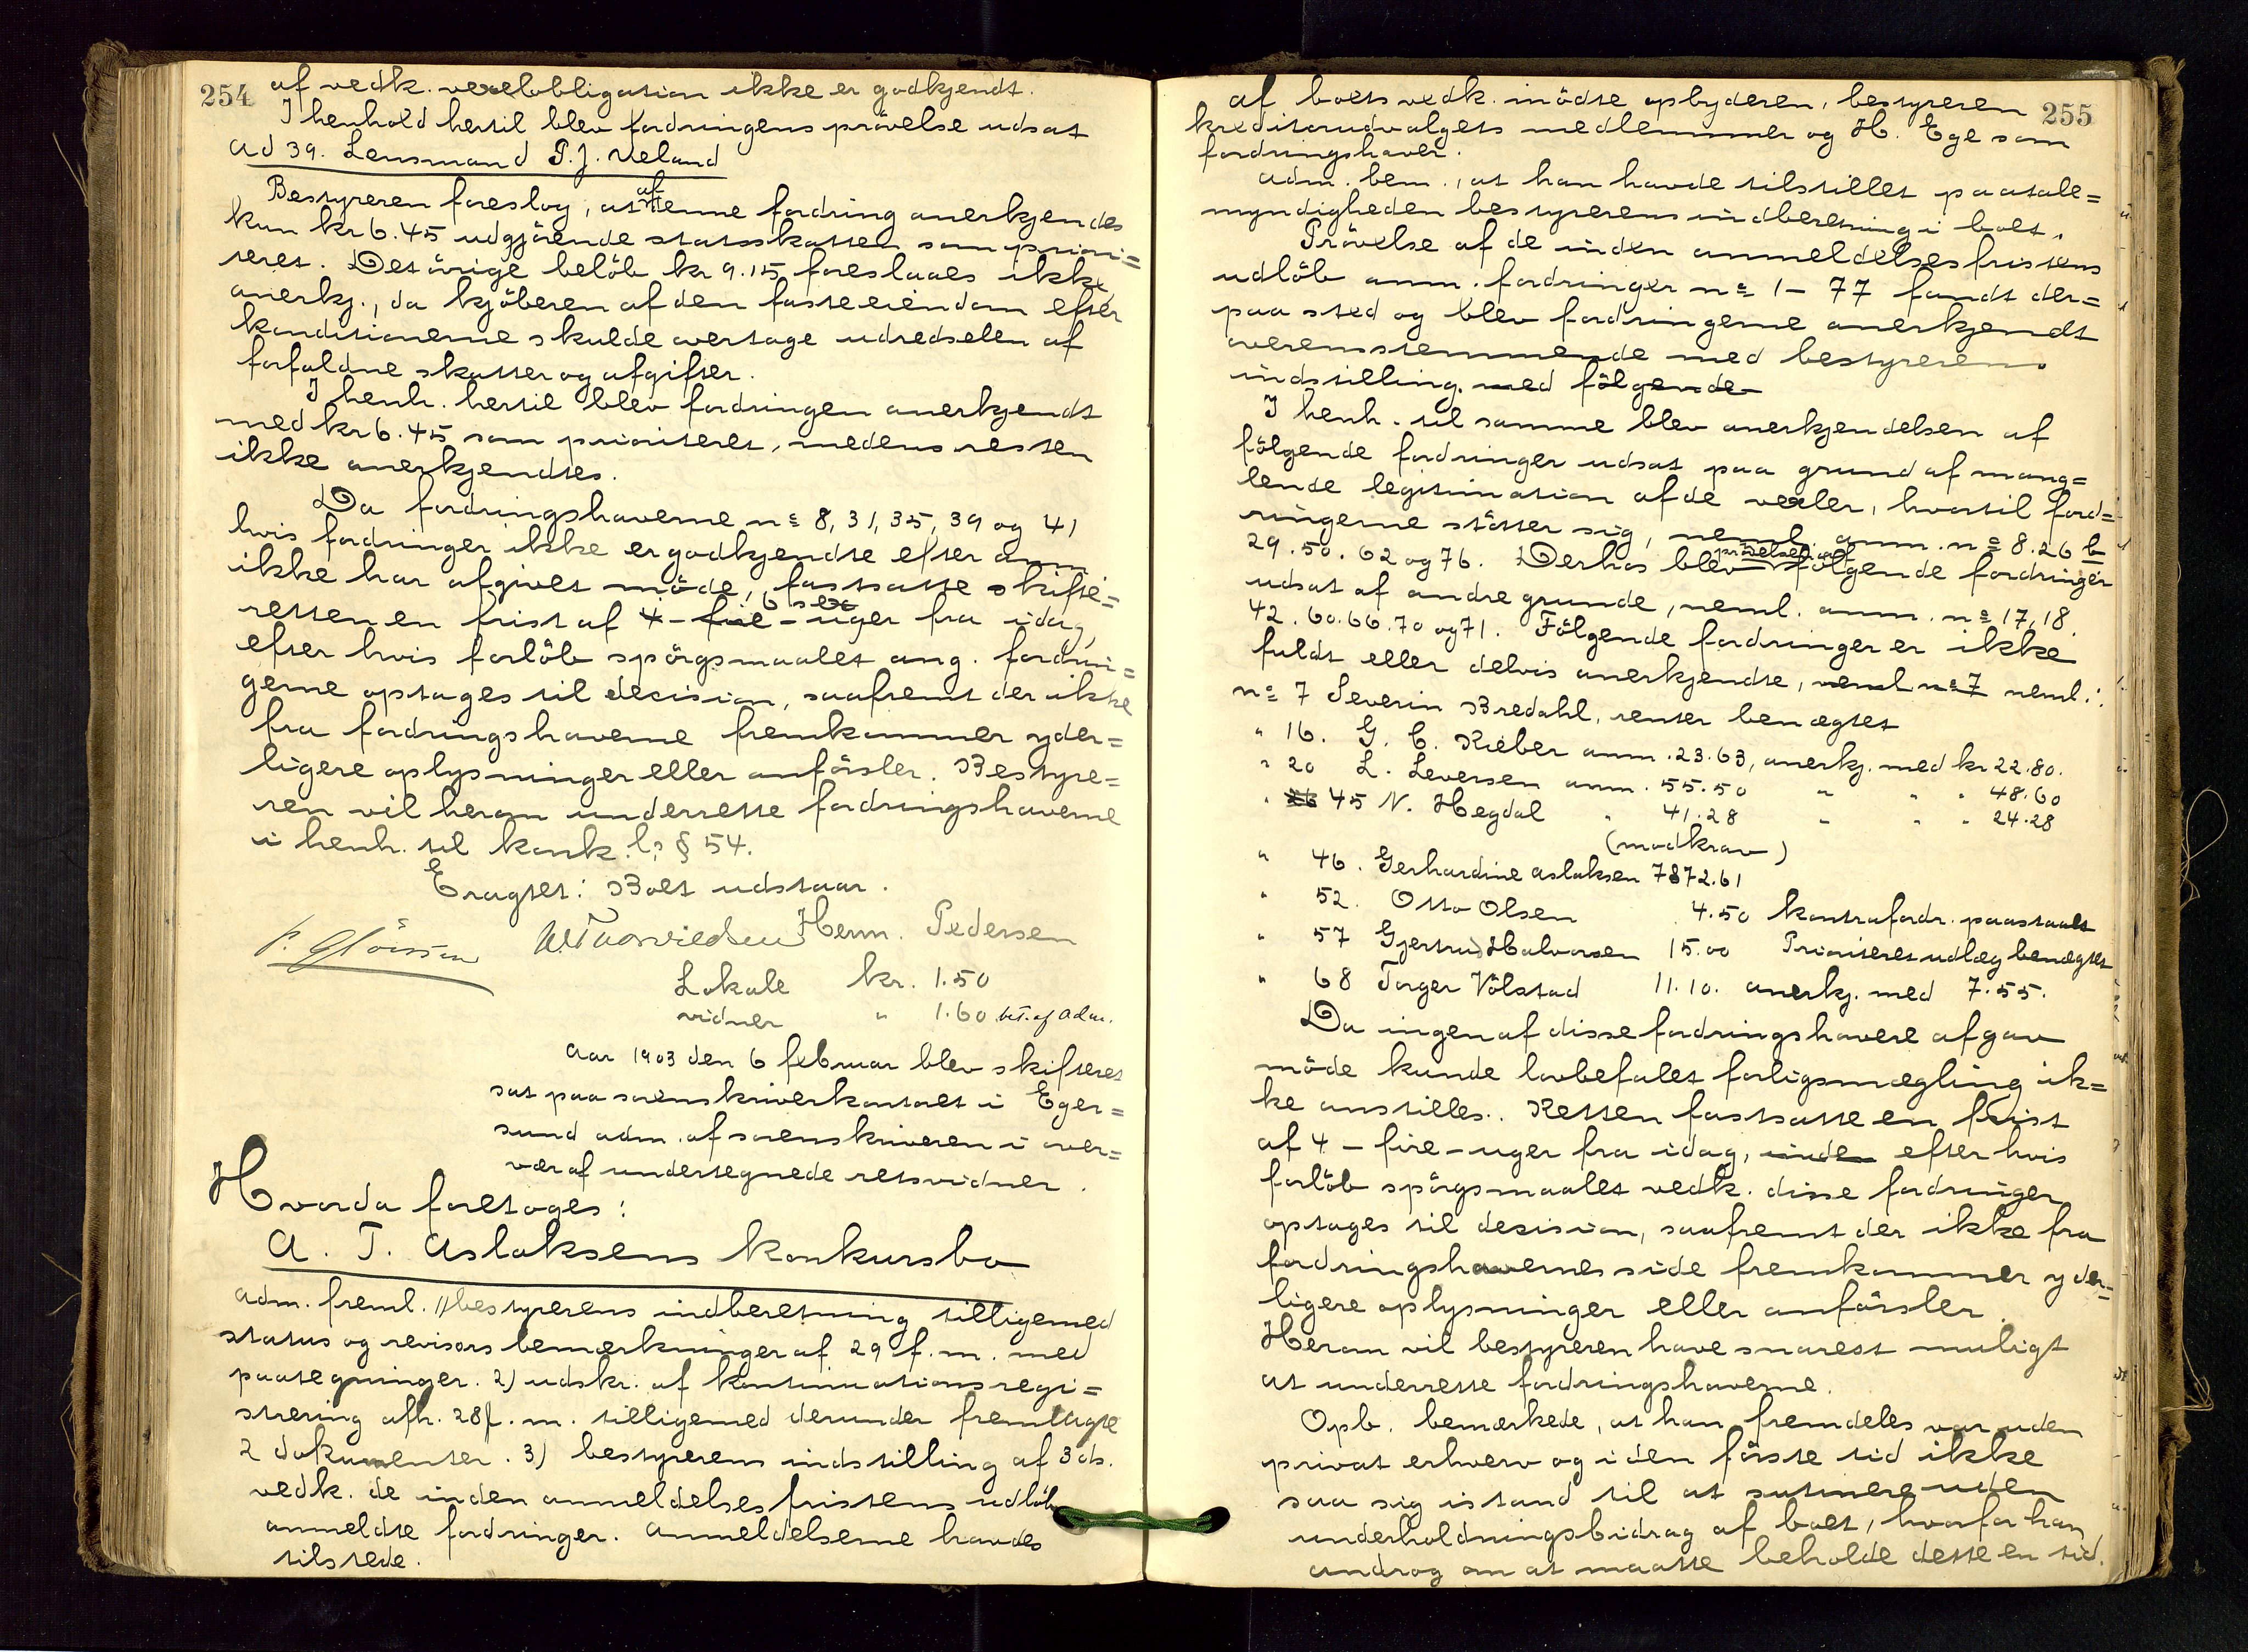 254
af vedk. vexelobligation ikke er godkjendt.
I henhold hertil blev fordringens prövelse udsat
Ad 39. Lensmand P. J. Ueland
Bestyreren foreslog, at af denne fordring anerkjendes
kun kr 6.45 udgjörende statsskatten som priori=
teret. Det övrige belöb kr 9.15 foreslaaes ikke
anerkj., da kjöberen af den faste eiendom efter
konditionerne skulde overtage udredselen af
forfaldne skatter og afgifter.
I henh. hertil blev fordringen anerkjendt
med kr 6.45 som prioriteret, medens resten
ikke anerkjendtes.
Da fordringshaverne no 8, 31, 35, 39 og 41
hvis fordringer ikke er godkjendte efter anm
ikke har afgivet möde, fastsatte skifte=
retten en frist af 4 - fire - 6 sex uger fra idag,
efter hvis forlöb spörgsmaalet ang. fordrin=
gerne optages til decision, saafremt der ikke
fra fordringshaverne fremkommer yder=
ligere oplysninger eller anförsler. Bestyre=
ren vil herom underrette fordringshaverne
i henh. til konk. l. § 54.
Eragtet: Boet udstaar.
Herm. Pedersen
Lokale kr. 1.50
vidner " 1.60 bet. af Adm.
Aar 1903 den 6 februar blev skifteret
sat paa sorenskriverkontoret i Eger=
sund adm. af sorenskriveren i over=
vær af undertegnede retsvidner.
Hvorda foretoges:
A. T. Aslaksens konkursbo
Adm. freml. 1) bestyrerens indberetning tilligemed
status og revisors bemærkninger af 29 f.m. med
paategninger. 2) udskr. af kontinuationsregi=
strering afh. 28 f.m. tilligemed derunder fremlagte
2 dokumenter. 3) bestyrerens indstilling af 3 ds.
vedk. de inden anmeldelsesfristens udlöb
anmeldte fordringer. Anmeldelserne havdes
tilstede.
255
Af boets vedk. mödte opbyderen, bestyreren
kreditorudvalgets medlemmer og H. Ege som
fordringshaver.
Adm. bem., at han havde tilstillet paatale=
myndigheden bestyrerens indberetning i boet.
Prövelse af de inden anmeldelsesfristens
udlöb anm. fordringer no 1 - 77 fandt der=
paa sted og blev fordringerne anerkjendt
overensstemmende med bestyrerens
indstilling. med fölgende
I henh. til samme blev anerkjendelsen af
fölgende fordringer udsat paa grund af mang=
lende legitimation af de vexler, hvortil ford=
ringerne stötter sig, neml. anm. no 8. 26 b
29. 50. 62 og 76. Derhos blev prövelsen af fölgende fordringer
udsat af andre grunde, neml. anm. no 17, 18.
42. 60. 66. 70 og 71. Fölgende fordringer er ikke
fuldt eller delvis anerkjendte, neml no 7 neml.:
no 7 Severin Bredahl, renter benægtet
" 16. G. C. Rieber anm. 23.63, anerkj. med kr 22.80.
" 20 L. Leversen anm. 55.50 " " " 48.60
" 45 N. Hegdal " 41.28 " " " 24.28
(modkrav)
" 46. Gerhardine Aslaksen 7872.61
" 52. Otto Olsen 4.50 kontrafordr. paastaaet
" 57 Gjertrud Halvorsen 15.00 Prioriteret udlæg benægtet
" 68 Torger Völstad 11.10. anerkj. med 7.55.
Da ingen af disse fordringshavere afgav
möde kunde lovbefalet forligsmægling ik=
ke anstilles. Retten fastsatte en frist
af 4 - fire - uger fra idag, inden efter hvis
forlöb spörgsmaalet vedk. disse fordringer
optages til decision, saafremt der ikke fra
fordringshavernes side fremkommer yder=
ligere oplysninger eller anförsler
Herom vil bestyreren have snarest muligt
at underrette fordringshaverne.
Opb. bemærkede, at han fremdeles var uden
privat erhverv og i den förste tid ikke
saa sig istand til at sutinere uden
underholdningsbidrag af boet, hvorfor han
androg om at maatte beholde dette en tid.